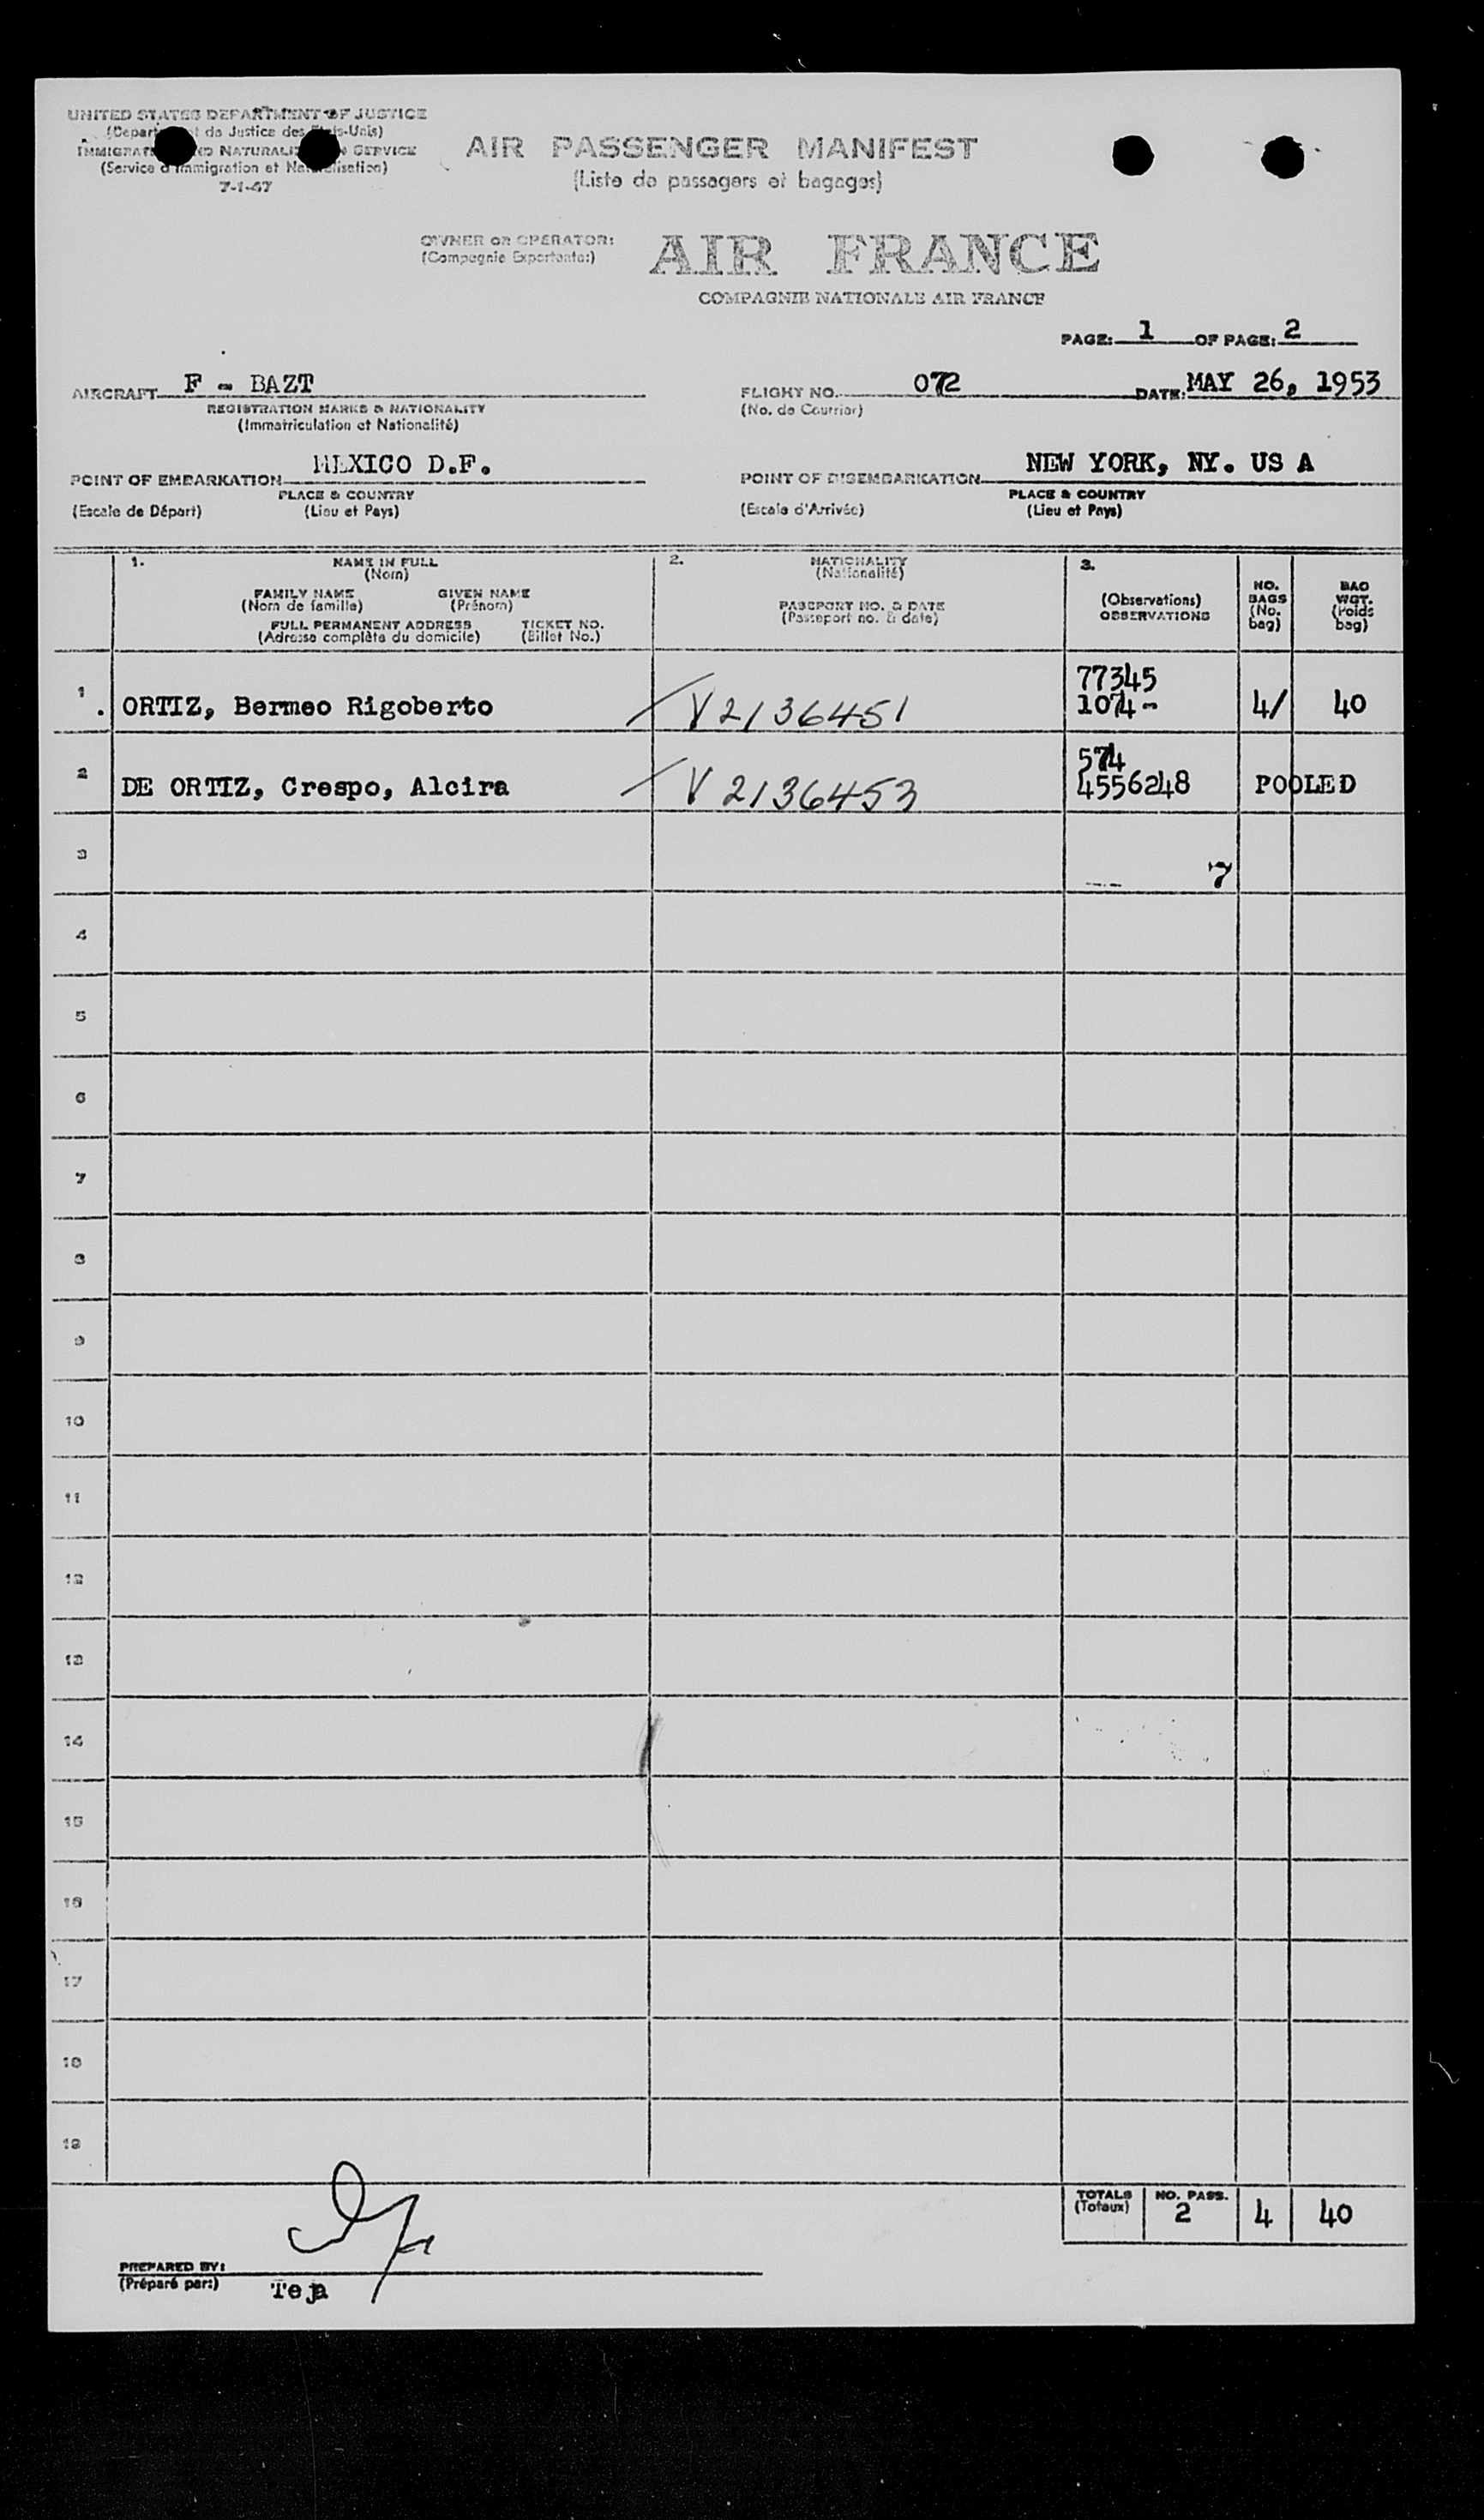 UNITED STATES DEPARTMENT OF JUSTICE
(Depart t de Justice des s-Unis)
IMMIGRAT ND NATURALIZ N SERVICE
(Service d'Immigration et Naturalisation)
7-1-47
AIR PASSENGER MANIFEST
(Liste de passagers et bagages)
OWNER OR OPERATOR:
(Compagnie Exportante:)
AIR FRANCE
COMPAGNIE NATIONALE AIR FRANCE
PAGE: 1 OF PAGE: 2
AIRCRAFT F - BAZT
REGISTRATION MARKS & NATIONALITY
(Immatriculation et Nationalité)
FLIGHT NO. 072
(No. de Courrier)
DATE: MAY 26, 1953
POINT OF EMBARKATION MEXICO D.F.
PLACE & COUNTRY
(Escale de Départ) (Lieu et Pays)
POINT OF DISEMBARKATION NEW YORK, NY. US A
PLACE & COUNTRY
(Escale d'Arrivée) (Lieu et Pays)
1. NAME IN FULL
(Nom)
FAMILY NAME GIVEN NAME
(Nom de famille) (Prénom)
FULL PERMANENT ADDRESS TICKET NO.
(Adresse complète du domicile) (Billet No.)
2. NATIONALITY
(Nationalité)
PASSPORT NO. & DATE
(Passeport no. & date)
3.
(Observations)
OBSERVATIONS
NO.
BAGS
(No.
bag)
BAG
WGT.
(Poids
bag)
77345
1 . ORTIZ, Bermeo Rigoberto V2136451 1074- 4/ 40
574
2 DE ORTIZ, Crespo, Alcira V 2136453 4556248 POOLED
3 7
4
5
6
7
8
9
10
11
12
13
14
15
16
17
18
19
TOTALS NO. PASS.
(Totaux) 2 4 40
PREPARED BY:
(Préparé par:) Teja